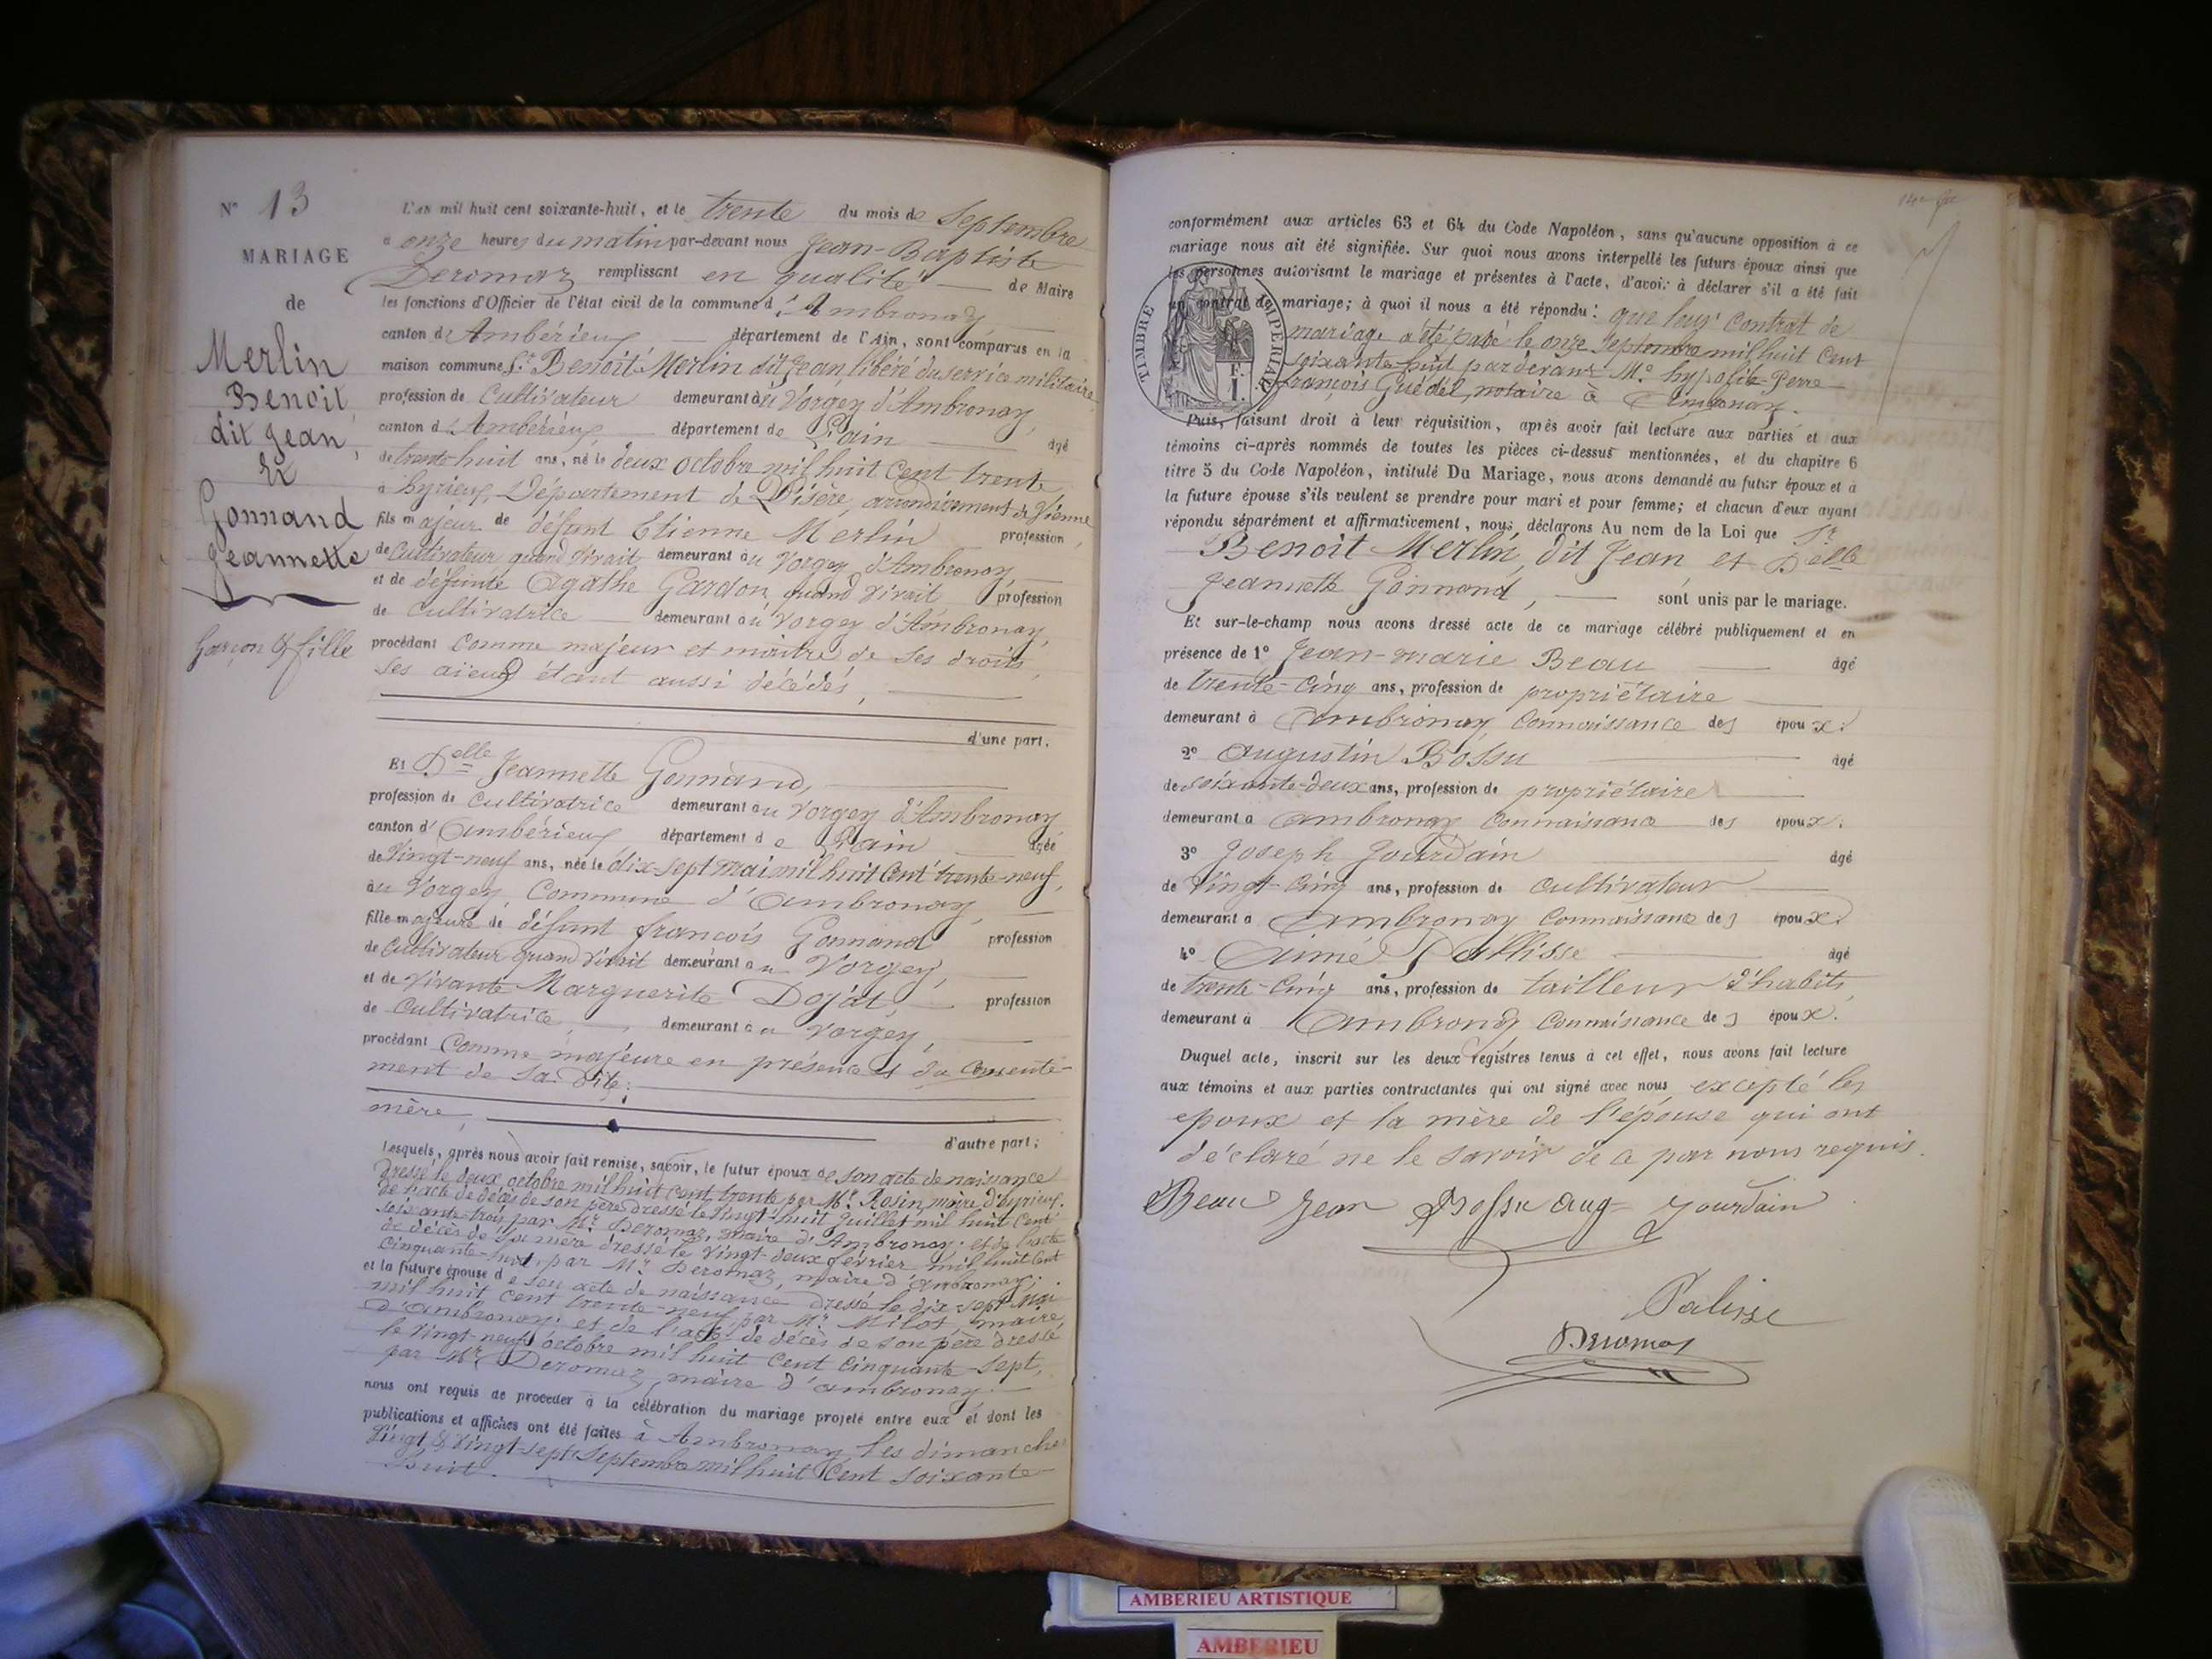 N° 13
MARIAGE
de
Merlin
Benoit
dit Jean,
&
Gonnand
Jeannette
Garçon & fille
L'an mil huit cent soixante-huit, et le trente du mois de Septembre
à onze heures du matin par-devant nous Jean-Baptiste
Deromaz remplissant en qualité de Maire
les fonctions d'Officier de l'état civil de la commune d'Ambronay
canton d'Ambérieux département de l'Ain, sont comparus en la
maison commune Sr. Benoit Merlin dit Jean, libéré du service militaire,
profession de Cultivateur demeurant au Vorgey d'Ambronay,
canton d'Ambérieux, département de L'ain âgé
de trente-huit ans, né le deux octobre mil huit cent trente
à hyrieux, Département de L'isère, arrondissement de Vienne
fils majeur de défunt Etienne Merlin profession
de Cultivateur quand vivait demeurant au Vorgey d'Ambronay,
et de défunte Agathe Gardon quand vivait profession
de Cultivatrice demeurant au Vorgey d'Ambronay,
procédant comme majeur et maitre de ses droits,
ses aieux étant aussi décédés,
d'une part.
Et Delle Jeannette Gonnand,
profession de Cultivatrice demeurant au Vorgey d'Ambronay
canton d'Ambérieux département de L'ain âgée
de Vingt-neuf ans, née le dix-sept mai mil huit cent trente-neuf,
au Vorgey, Commune d'Ambronay,
fille majeure de défunt françois Gonnand profession
de Cultivateur quand vivait demeurant au Vorgey,
et de vivante Marguerite Dojat, profession
de Cultivatrice, demeurant au Vorgey,
procédant Comme majeure en présence et du consente-
ment de sa dite
mère,
d'autre part;
Lesquels, après nous avoir fait remise, savoir, le futur époux de son acte de naissance
dressé le deux octobre mil huit cent trente par Mr. Rosin, maire d'hyrieux.
de l'acte de décès de son père dressé le Vingt-huit Juillet mil huit Cent
soixante-trois par Mr Deromaz, maire d'Ambronay; et de l'acte
de décès de sa mère dressé le Vingt-deux février mil huit Cent
Cinquante-huit, par Mr Deromaz, maire d'Ambronay;
et la future épouse de son acte de naissance dressé le dix sept Mai
mil huit cent trente-neuf par Mr Milot, maire
d'ambronay; et de l'acte de décès de son père dressé
le Vingt-neuf octobre mil huit Cent Cinquante Sept,
par Mr Deromaz, maire d'ambronay.
nous ont requis de procéder à la célébration du mariage projeté entre eux et dont les
publications et affiches ont été faites à Ambronay, les dimanches
Vingt & Vingt-sept Septembre mil huit Cent soixante
huit.
conformément aux articles 63 et 64 du Code Napoléon, sans qu'aucune opposition à ce
mariage nous ait été signifiée. Sur quoi nous avons interpellé les futurs époux ainsi que
les personnes autorisant le mariage et présentes à l'acte, d'avoir à déclarer s'il a été fait
un contrat de mariage; à quoi il nous a été répondu: que leur Contrat de
mariage a été passé le onze Septembre mil huit Cent
soixante huit pardevant Me. hypolite-Perre-
françois Guédel, notaire à Ambronay.
TIMBRE IMPERIAL
Puis, faisant droit à leur réquisition, après avoir fait lecture aux parties et aux
témoins ci-après nommés de toutes les pièces ci-dessus mentionnées, et du chapitre 6
titre 5 du Code Napoléon, intitulé Du Mariage, nous avons demandé au futur époux et à
la future épouse s'ils veulent se prendre pour mari et pour femme; et chacun d'eux ayant
répondu séparément et affirmativement, nous déclarons Au nom de la Loi que Sr
Benoit Merlin, dit Jean et Delle
Jeannette Gonnand, sont unis par le mariage.
Et sur-le-champ nous avons dressé acte de ce mariage célébré publiquement et en
présence de 1° Jean-marie Beau âgé
de trente-Cinq ans, profession de propriétaire
demeurant à Ambronay, Connaissance des époux.
2° Augustin Bossu âgé
de soixante-deux ans, profession de propriétaire
demeurant à Ambronay, Connaissance des époux.
3° Joseph Jourdain âgé
de Vingt-Cinq ans, profession de Cultivateur
demeurant à Ambronay Connaissance des époux.
4° Aimé Pallisse âgé
de trente-Cinq ans, profession de tailleur d'habits,
demeurant à Ambronay Connaissance des époux.
Duquel acte, inscrit sur les deux registres tenus à cet effet, nous avons fait lecture
aux témoins et aux parties contractantes qui ont signé avec nous, excepté les
epoux et la mère de l'épouse qui ont
déclaré ne le savoir de ce par nous requis.
Beau Jean Bossu Aug Jourdain
Palisse
Deromaz
AMBERIEU ARTISTIQUE
AMBERIEU